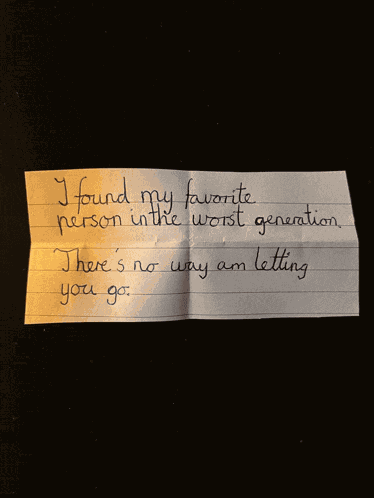 I found my favorite
person in the worst generation.
There's no way am letting
you go.